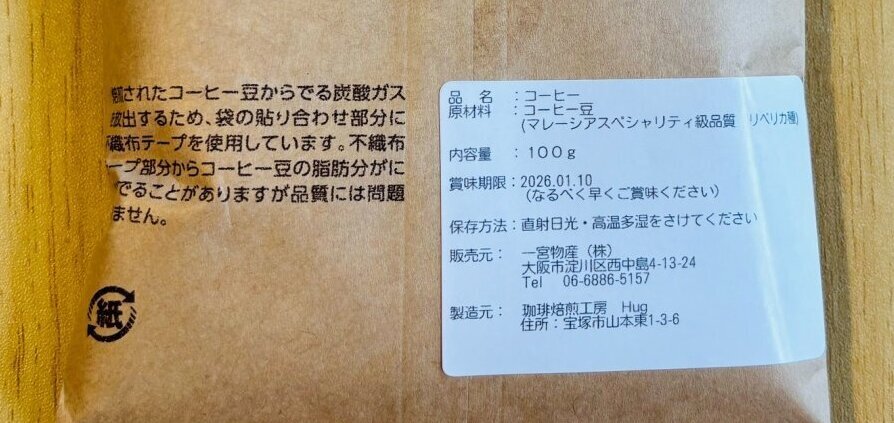 されたコーヒー豆からでる炭酸ガス
出するため、袋の貼り合わせ部分に
織布テープを使用しています。不織布
ープ部分からコーヒー豆の脂肪分がに
でることがありますが品質には問題
ません。
紙
品　名　：コーヒー
原材料　：コーヒー豆
(マレーシアスペシャリティ級品質　リベリカ種)
内容量　：１００ｇ
賞味期限：2026.01.10
(なるべく早くご賞味ください)
保存方法：直射日光・高温多湿をさけてください
販売元：　一宮物産（株）
大阪市淀川区西中島4-13-24
Tel　06-6886-5157
製造元：　珈琲焙煎工房　Hug
住所：宝塚市山本東1-3-6